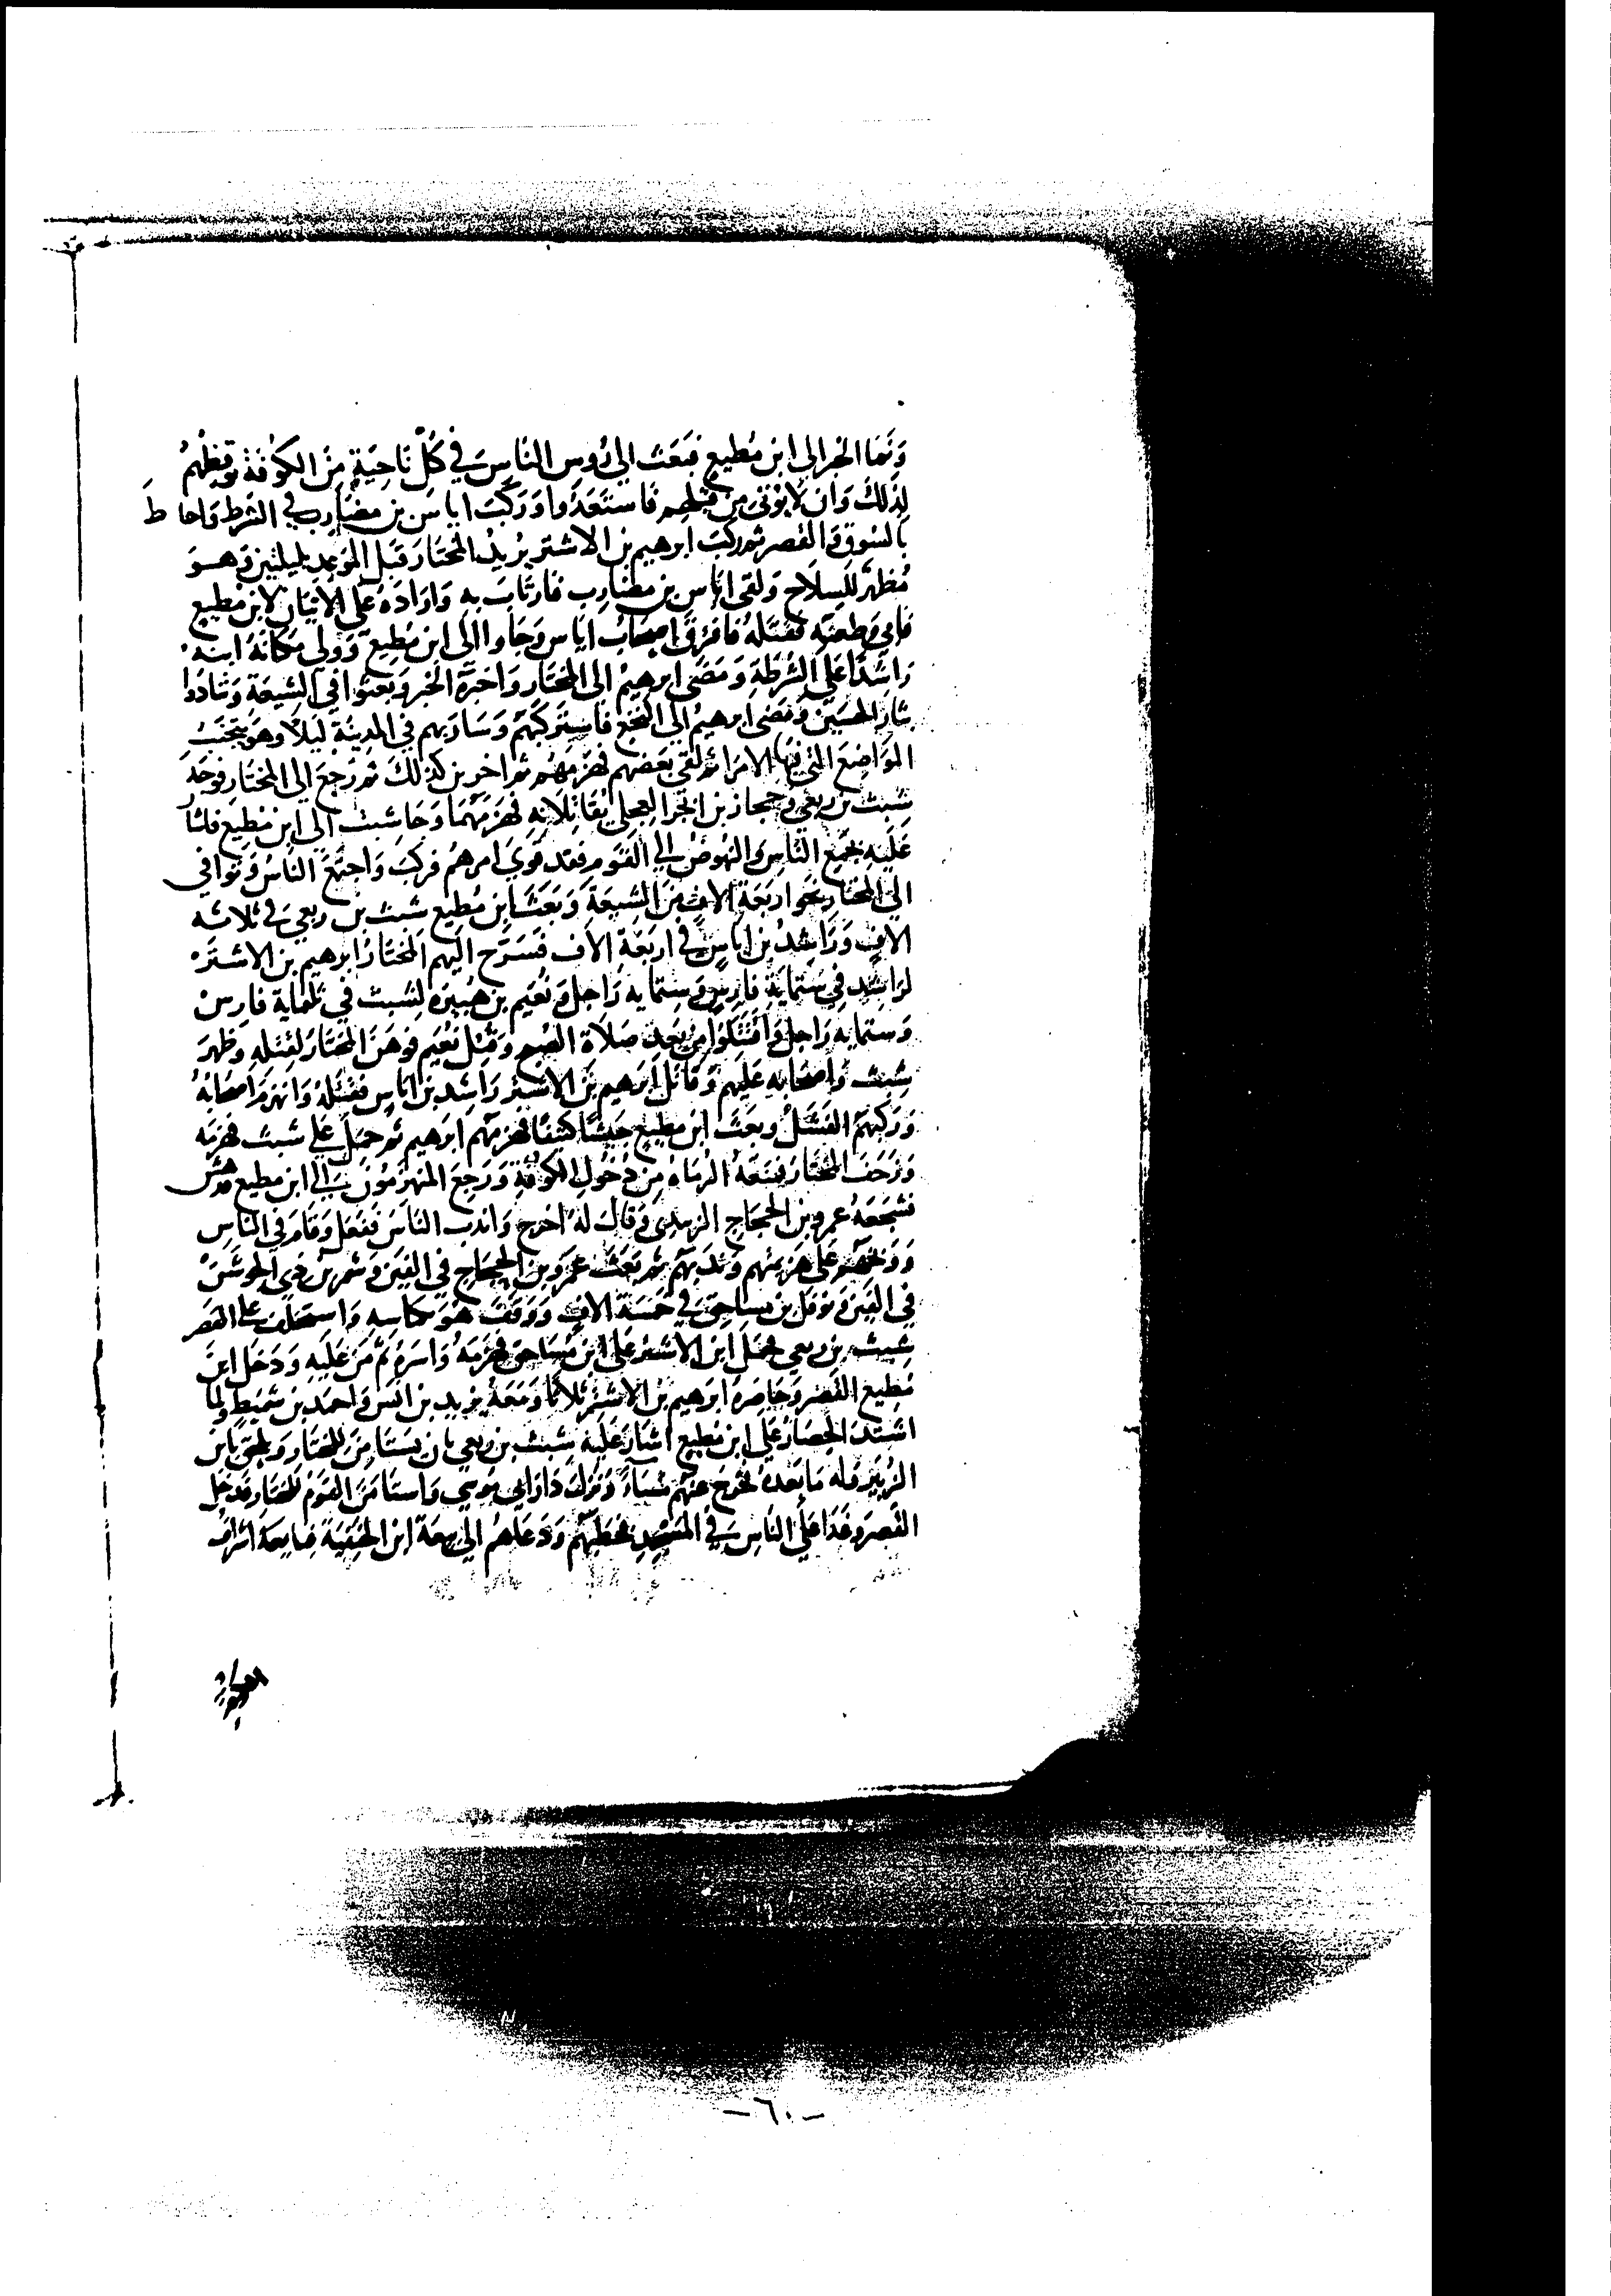 ونما الخبر الى ابن مطيع فبعث الي رؤس الناس في كل ناحية من الكوفة يوقظهم
لذلك وان لا يوتى من قبلهم فاستعدوا وركب اياس بن مضارب في الشرط واحاط
بالسوق والقصر ثم ركب ابرهيم بن الاشتر يريد المختار قبل الموعد بليلتين وهو
مظهر للسلاح ولقى اياس بن مضارب فارتاب به واراده على الاتيان لابن مطيع
فابي وطعنه فقتله فافترق اصحاب اياس وجاوا الى ابن مطيع وولي مكانه ابنه
راشدا على الشرطة ومضى ابرهيم الى المختار واخبره الخبر وبعثوا في الشيعة وتنادوا
بثار الحسين ومضى ابرهيم الي النخع فاستركبهم وسار بهم في المدينة ليلا وهو يتجنب
المواضع التي فيها الامرا ثم لقى بعضهم فهزمهم ثم اخرين كذلك ثم رجع الي المختار فوجد
شبث بن ربعي وحجار بن ابجر العجلي يقاتلانه فهزمهما وجا شبث الي ابن مطيع فاشار
عليه بجمع الناس والنهوض الي القوم فقد قوي امرهم فركب واجتمع الناس وتوافي
الي المختار نحو اربعة الاف من الشيعة وبعث ابن مطيع شبث بن ربعي في ثلاثه
الاف وراشد بن اياس في اربعة الاف فسرح اليهم المختار ابرهيم بن الاشتر
لراشد في ستماية فارس وستمايه راجل ونعيم بن هبيره لشبث في ثلماية فارس
وستمايه راجل واقتتلوا من بعد صلاة الصبح وقتل نعيم فوهن المختار لقتله وظهر
شبث واصحابه عليهم وقاتل ابرهيم بن الاشتر راشد بن اياس فقتله وانهزم اصحابه
وركبهم الفشل وبعث ابن مطيع جيشا كثيفا فهزمهم ابرهيم ثم حمل على شبث فهزمه
وزحف المختار فمنعه الرماه من دخول الكوفة ورجع المنهزمون الي ابن مطيع فدهش
فشجعه عمرو بن الحجاج الزبيدى وقال له اخرج واندب الناس ففعل وقام في الناس
ووبخهم على هزيمتهم وندبهم ثم بعث عمرو بن الحجاج في الفين وشمر بن ذي الجوشن
في الفين ونوفل بن مساحق في خمسة الاف ووقف هو بكناسه واستخلف على القصر
شبث بن ربعي فحمل ابن الاشتر على ابن مساحق فهزمه واسره ثم من عليه ودخل ابن
مطيع القصر وحاصره ابرهيم بن الاشتر ثلاثا ومعه يزيد بن انس واحمد بن شميط ولما
اشتد الحصار على ابن مطيع اشار عليه شبث بن ربعي بان يستامن للمختار ويلحق بابن
الزبير وله ما بعده فخرج عنهم مساء ونزل دار ابي موسي واستامن القوم للمختار فدخل
القصر وغدا على الناس في المسجد فخطبهم ودعاهم الي بيعة ابن الحنفية فبايعه اشراف
الكوفة
-٦٠-